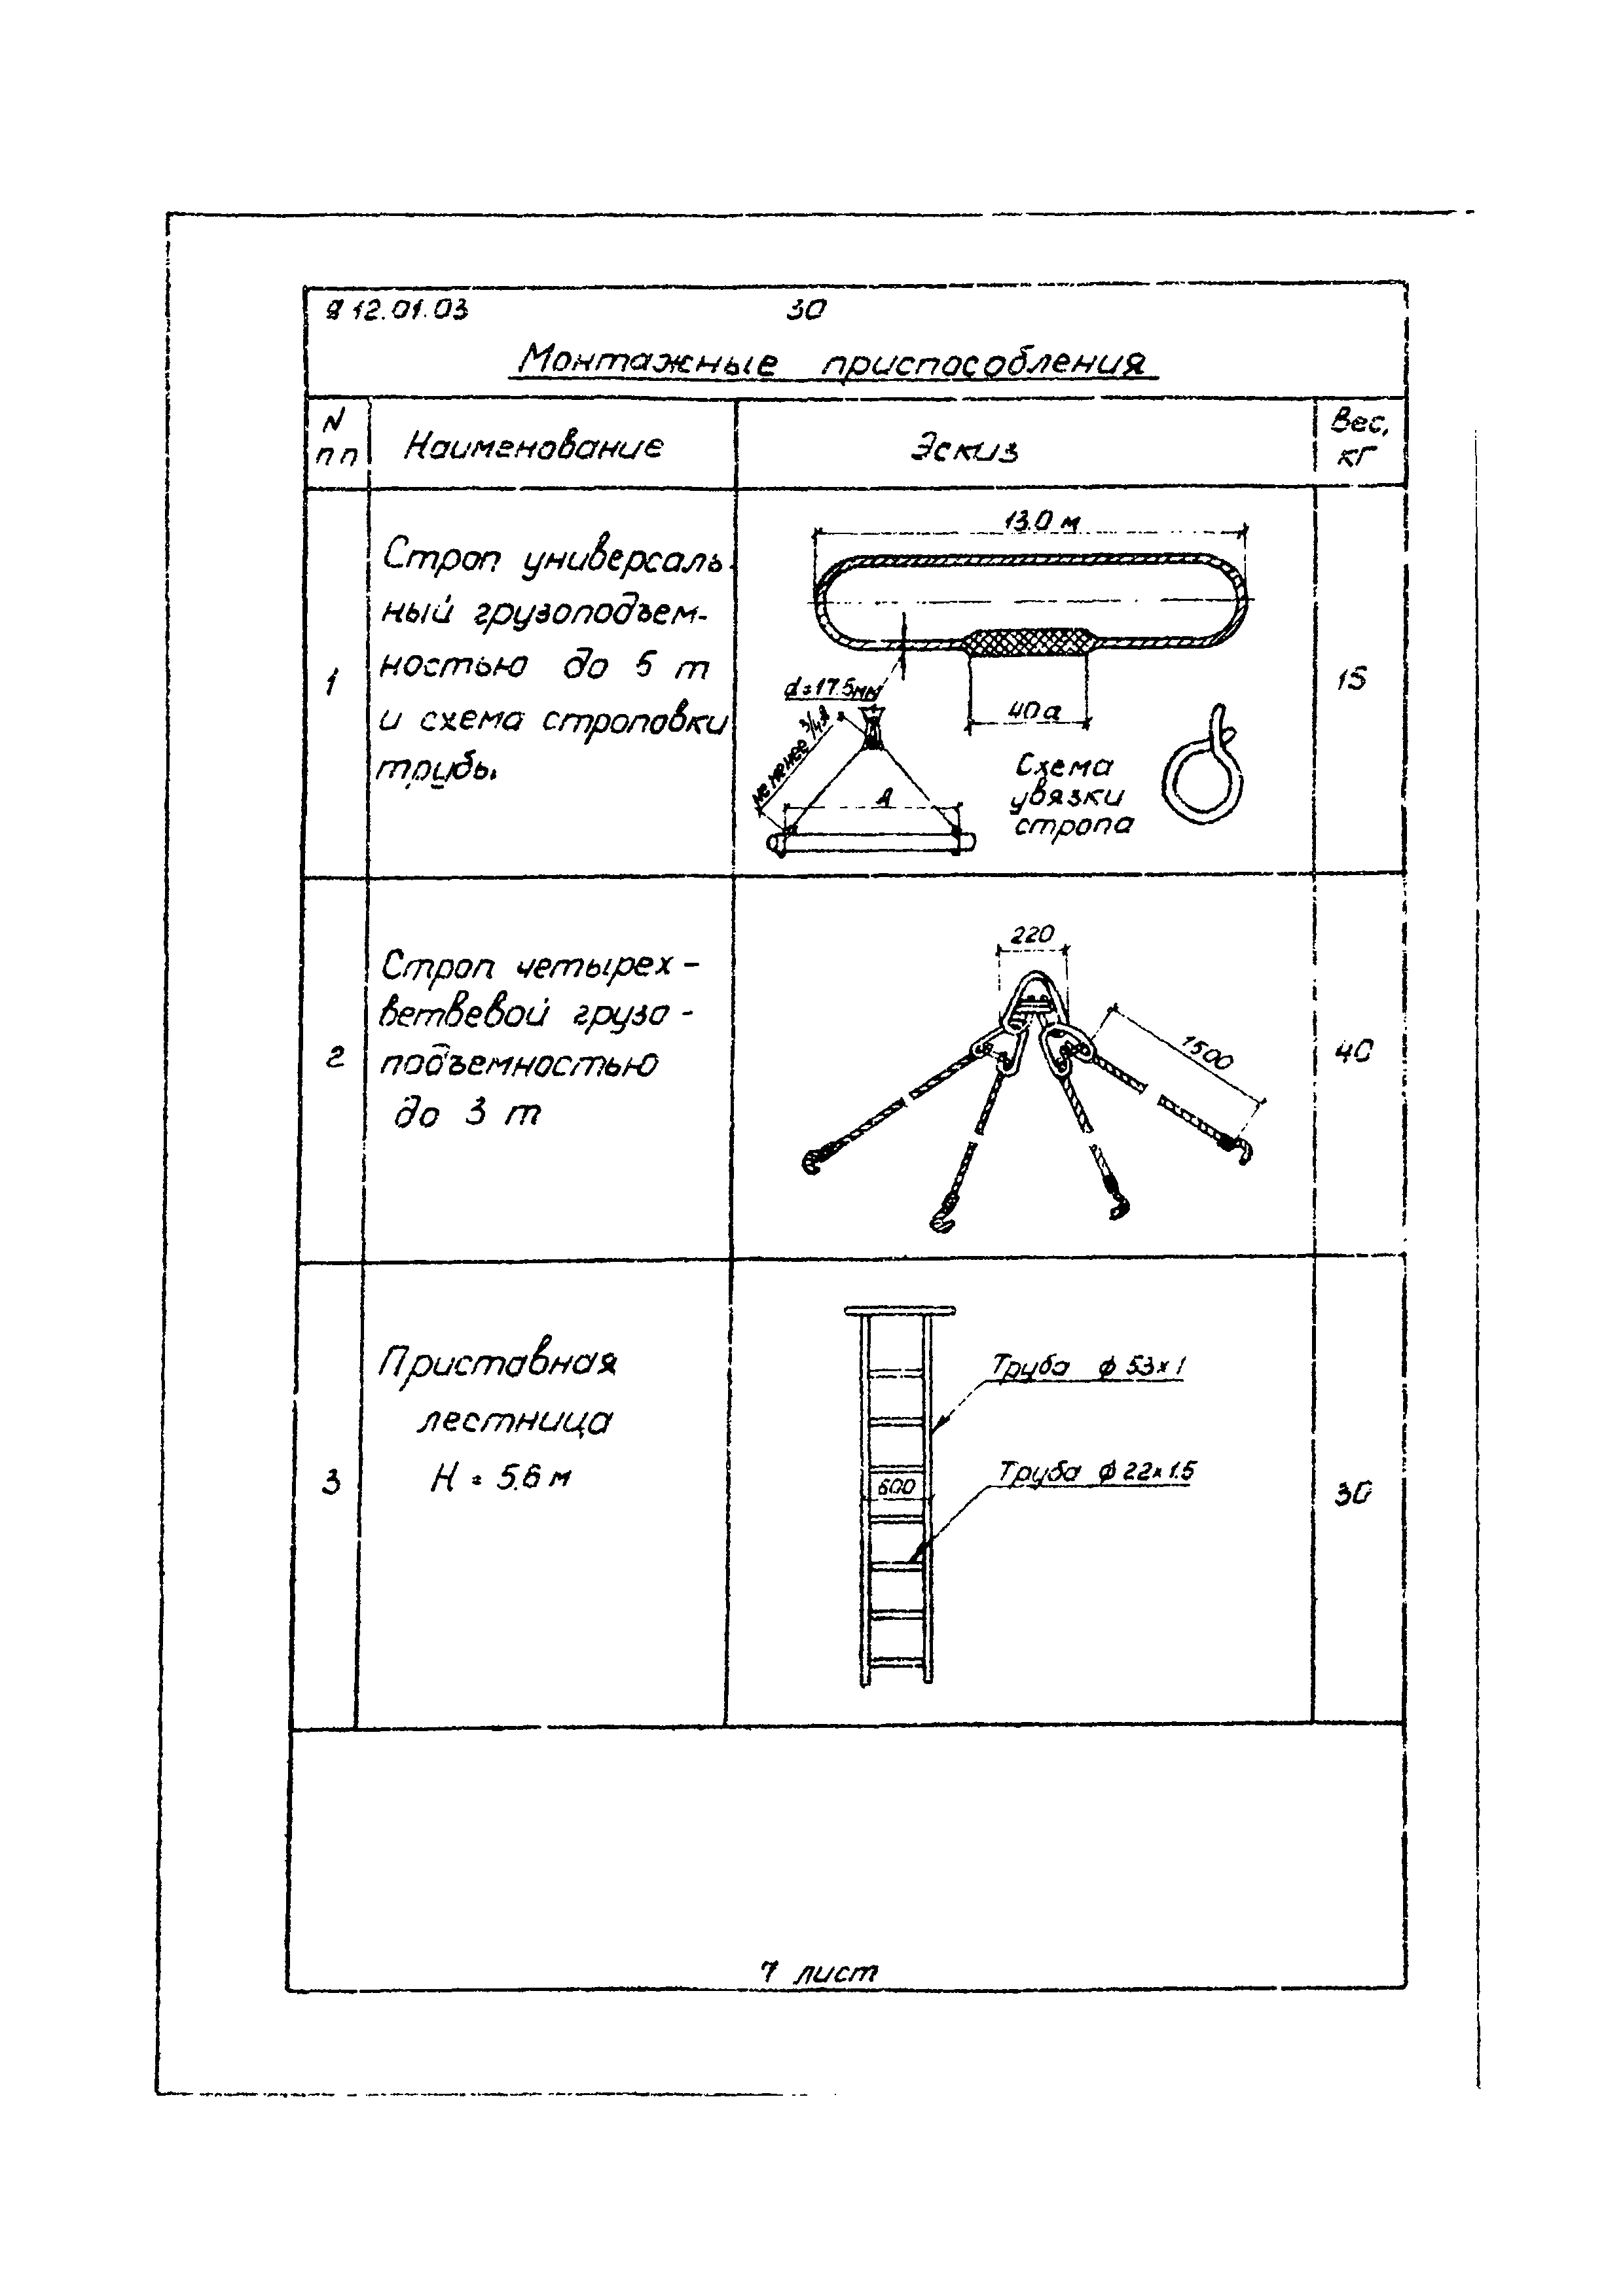 8 12.01.03
30
Монтажные приспособления
N
пп
Наименование
Эскиз
Вес,
кг
1
Строп универсаль-
ный грузоподъем-
ностью до 5 т
и схема строповки
трубы.
13.0 м
d=17.5мм
40d
не менее 3/4
A
Схема
увязки
стропа
15
2
Строп четырех-
ветвевой грузо-
подъемностью
до 3 т
220
1500
40
3
Приставная
лестница
H = 5.6 м
Труба ф 53×1
Труба ф 22×1.5
600
30
7 лист